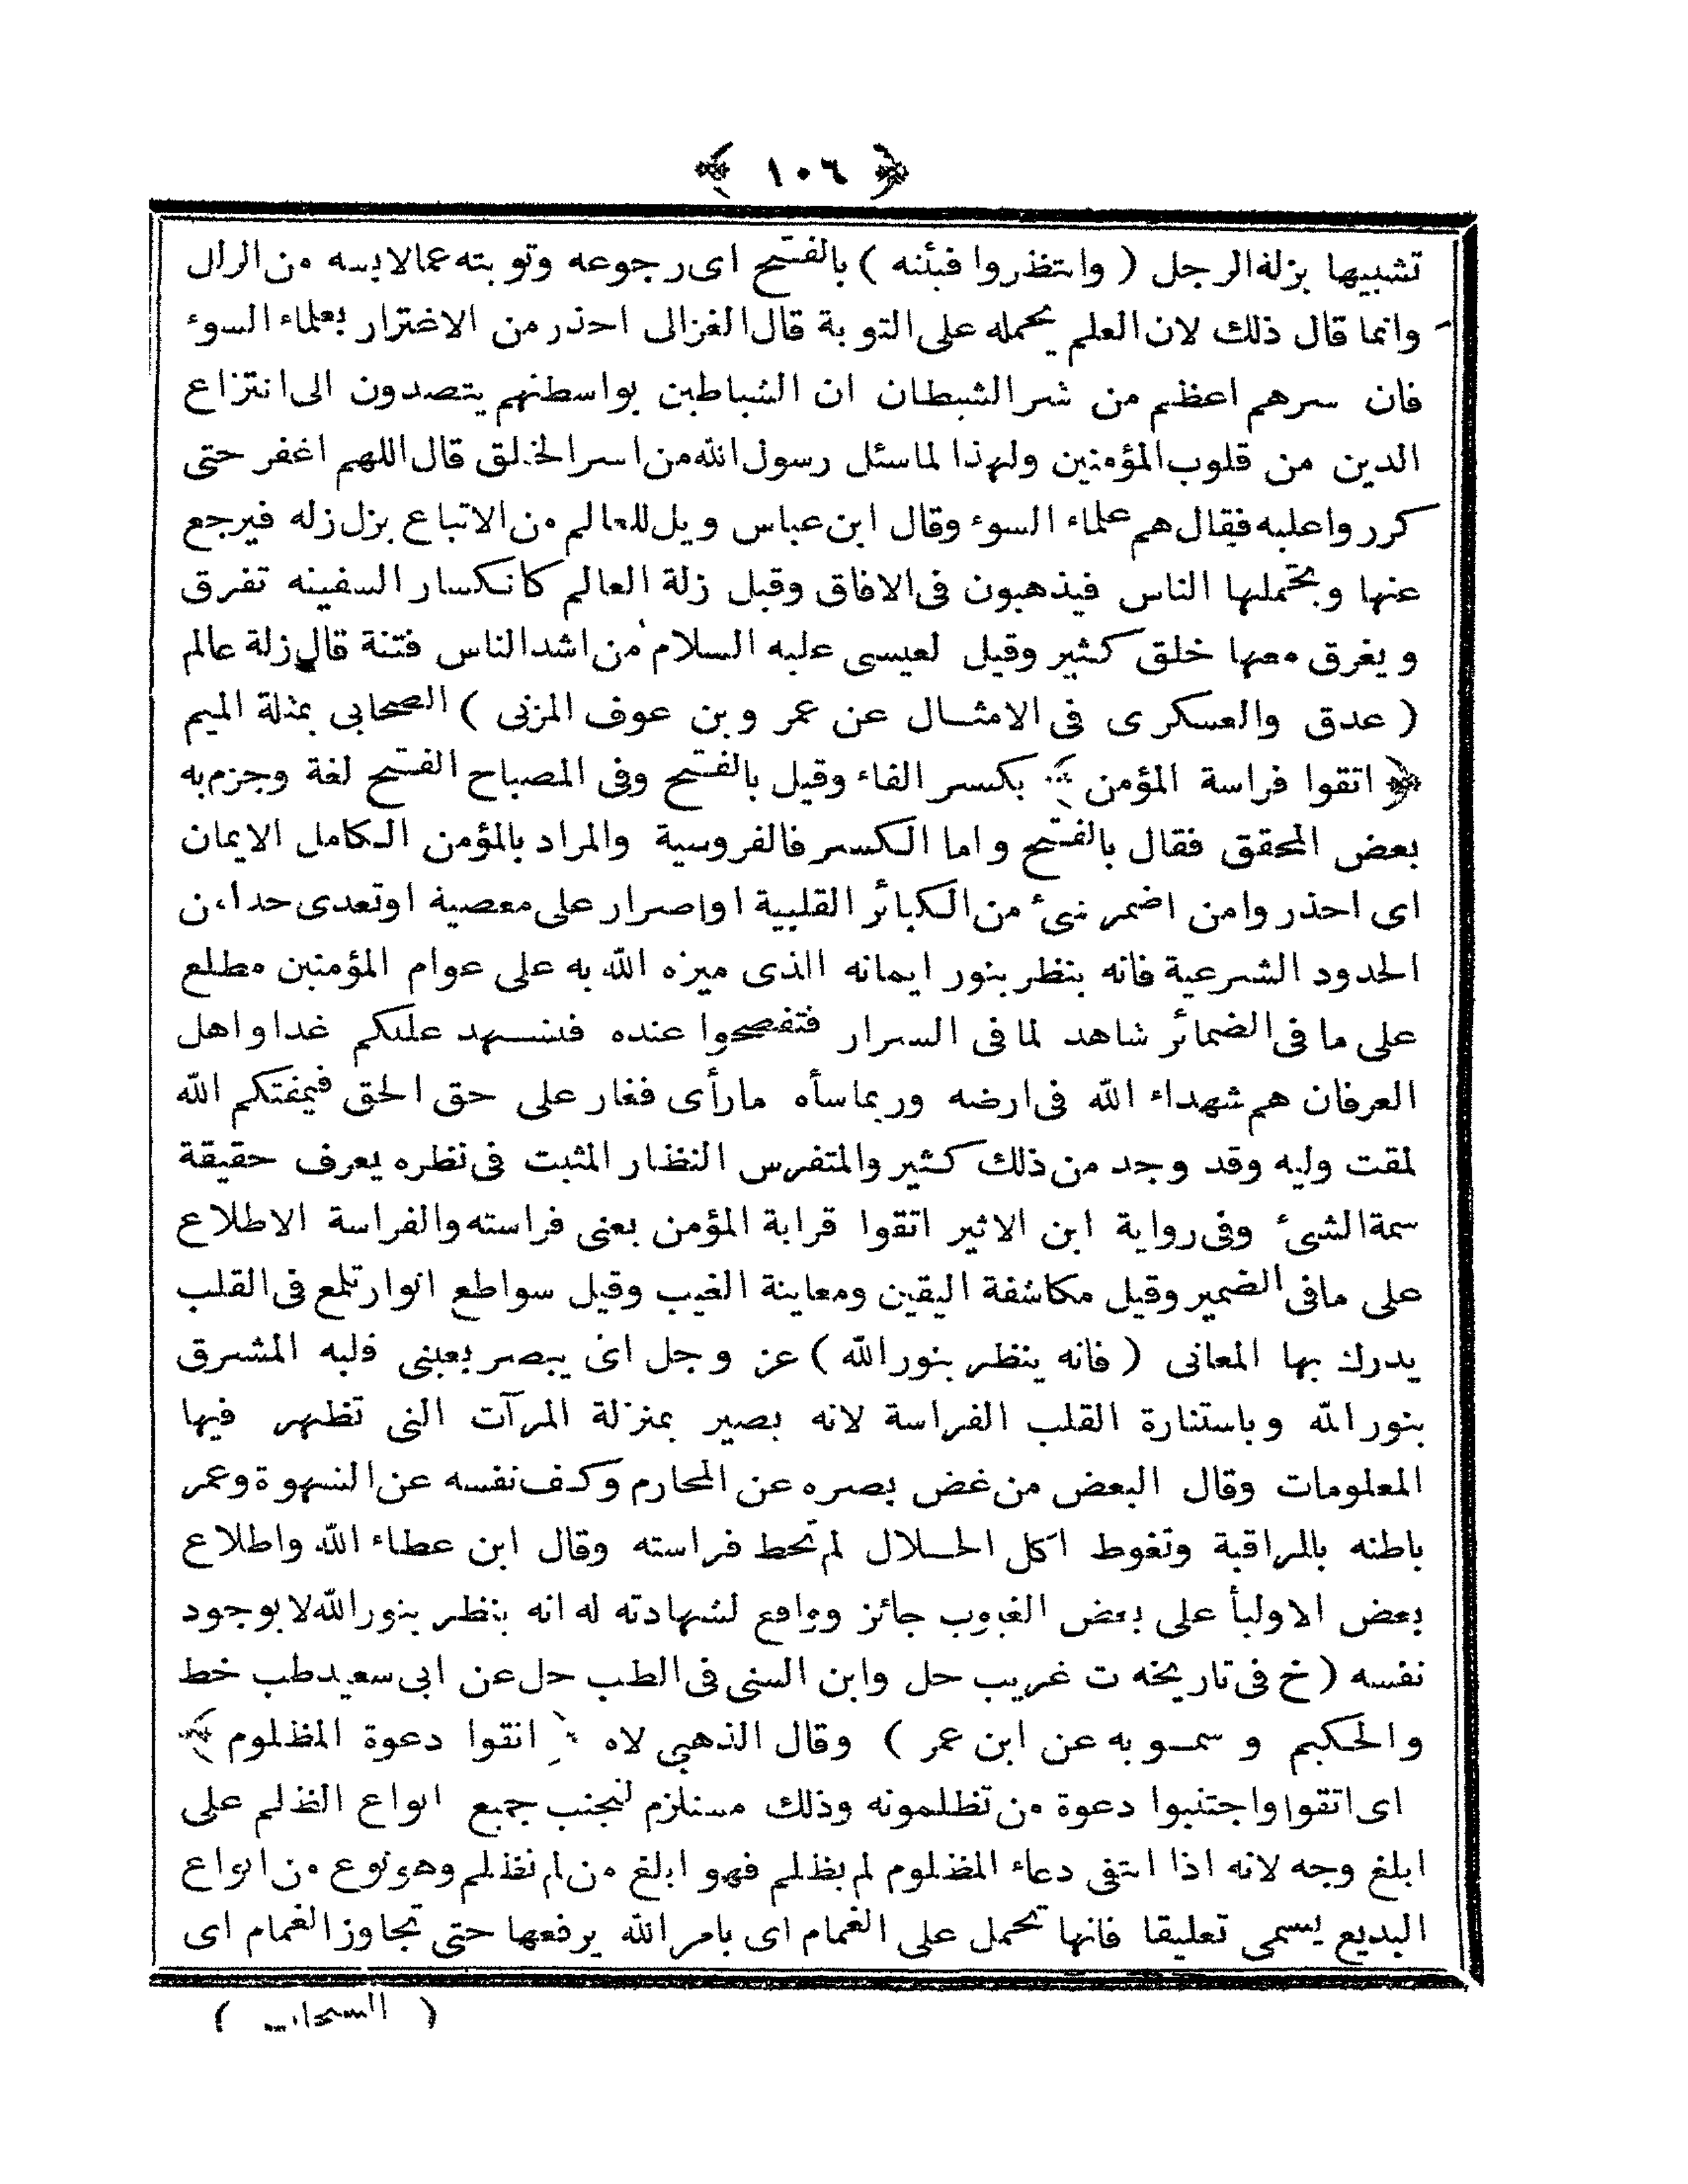 ﴿ ١٠٦ ﴾
تشبيها بزلة الرجل ( وانتظروا فيئته ) بالفتح اى رجوعه وتوبته عما لابسه من الزلل
وانما قال ذلك لان العلم يحمله على التوبة قال الغزالى احذر من الاغترار بعلماء السوء
فان شرهم اعظم من شر الشيطان ان الشياطين بواسطتهم يتصدون الى انتزاع
الدين من قلوب المؤمنين ولهذا لما سئل رسول الله من اشر الخلق قال اللهم اغفر حتى
كرروا عليه فقال هم علماء السوء وقال ابن عباس ويل للعالم من الاتباع يزل زلة فيرجع
عنها ويحتملها الناس فيذهبون فى الافاق وقيل زلة العالم كانكسار السفينه تغرق
ويغرق معها خلق كثير وقيل لعيسى عليه السلام من اشد الناس فتنة قال زلة عالم
( عدق والعسكرى فى الامثال عن عمرو بن عوف المزنى ) الصحابى بمثلة الميم
﴿ اتقوا فراسة المؤمن ﴾ بكسر الفاء وقيل بالفتح وفى المصباح الفتح لغة وجزم به
بعض المحقق فقال بالفتح واما الكسر فالفروسية والمراد بالمؤمن الكامل الايمان
اى احذروا من اضمر شئ من الكبائر القلبية او اصرار على معصية او تعدى حدا من
الحدود الشرعية فانه ينظر بنور ايمانه الذى ميزه الله به على عوام المؤمنين مطلع
على ما فى الضمائر شاهد لما فى السرار فتفضحوا عنده فيشهد عليكم غدا واهل
العرفان هم شهداء الله فى ارضه وربما سأه ما رأى فغار على حق الحق فيمقتكم الله
لمقت وليه وقد وجد من ذلك كثير والمتفرس النظار المثبت فى نظره يعرف حقيقة
سمة الشئ وفى رواية ابن الاثير اتقوا قرابة المؤمن يعنى فراسته والفراسة الاطلاع
على ما فى الضمير وقيل مكاشفة اليقين ومعاينة الغيب وقيل سواطع انوار تلمع فى القلب
يدرك بها المعانى ( فانه ينظر بنور الله ) عز وجل اى يبصر بعينى قلبه المشرق
بنور الله وباستنارة القلب الفراسة لانه يصير بمنزلة المرآت التى تظهر فيها
المعلومات وقال البعض من غض بصره عن المحارم وكف نفسه عن الشهوة وعمر
باطنه بالمراقبة وتغوط اكل الحلال لم تخط فراسته وقال ابن عطاء الله واطلاع
بعض الاوليأ على بعض الغيوب جائز وواقع لشهادته له انه ينظر بنور الله لا بوجود
نفسه ( خ فى تاريخه ت غريب حل وابن السنى فى الطب حل عن ابى سعيد طب خط
والحكيم و سمويه عن ابن عمر ) وقال الذهبى لاه ﴿ اتقوا دعوة المظلوم ﴾
اى اتقوا واجتنبوا دعوة من تظلمونه وذلك مستلزم لتجنب جميع انواع الظلم على
ابلغ وجه لانه اذا اتقى دعاء المظلوم لم يظلم فهو ابلغ من لم تظلم وهو نوع من انواع
البديع يسمى تعليقا فانها تحمل على الغمام اى بامر الله يرفعها حتى تجاوز الغمام اى
( السحاب )